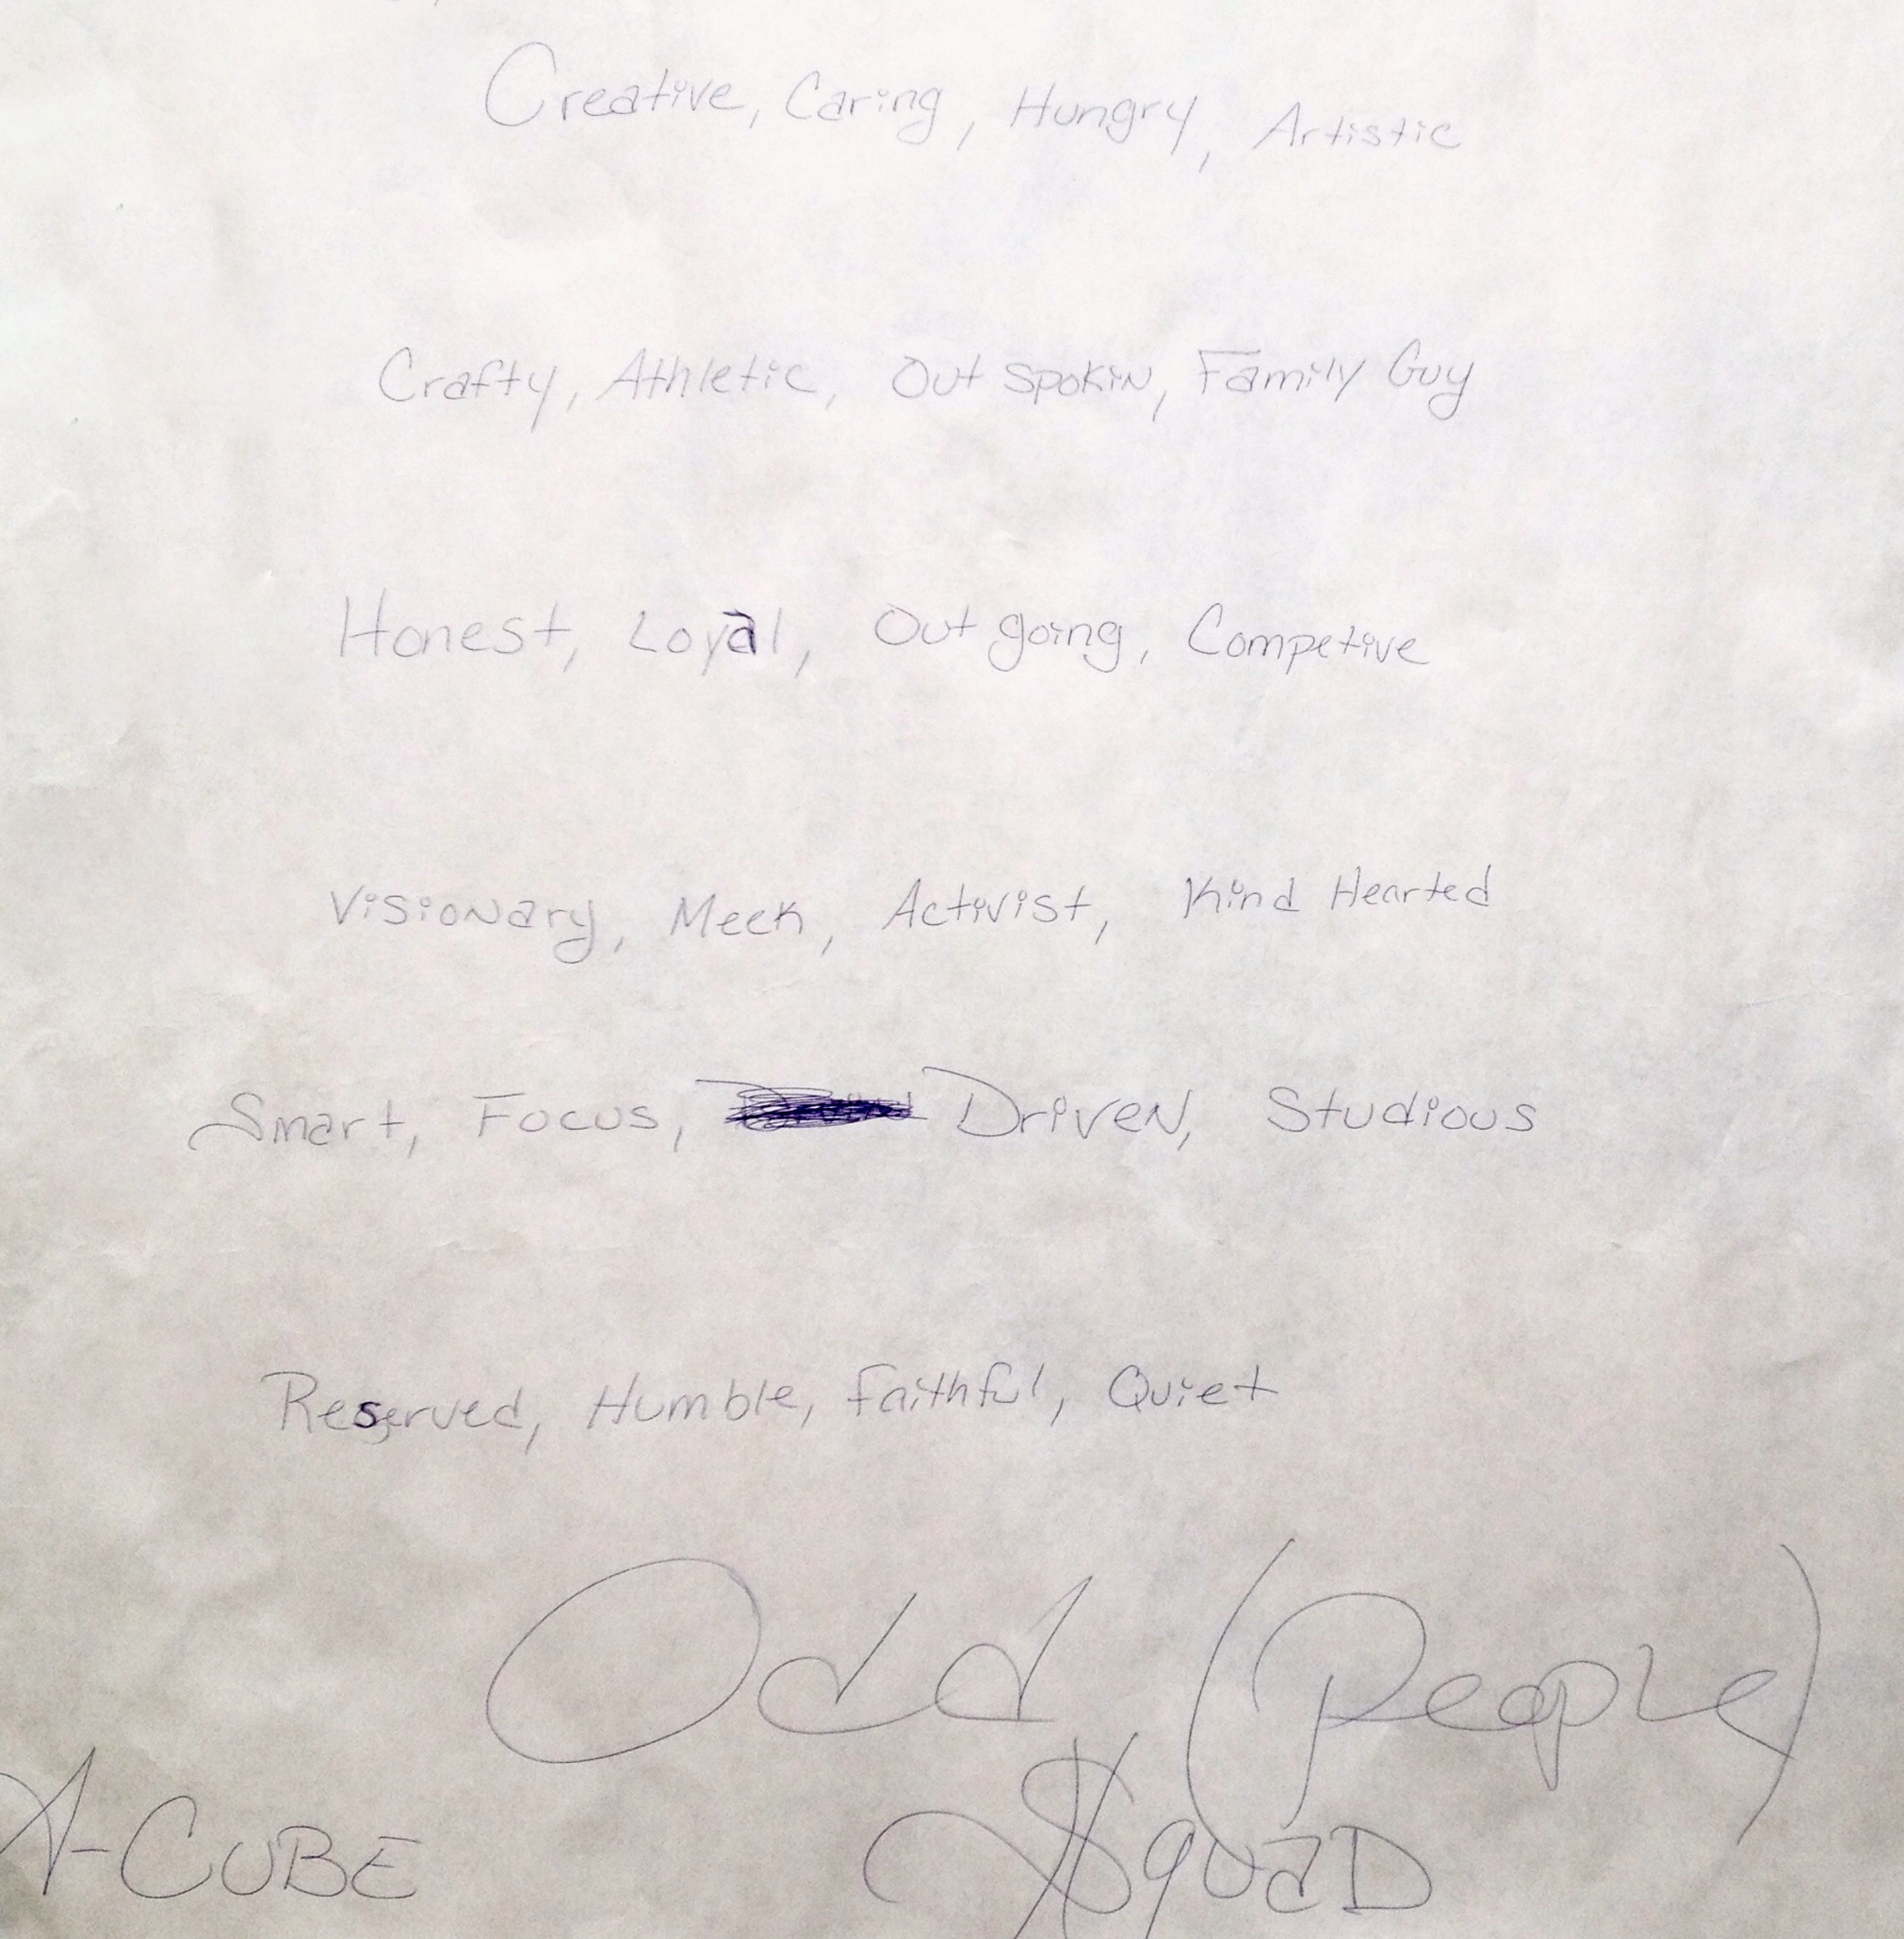 Creative, Caring, Hungry, Artistic
Crafty, Athletic, Out spokin, Family Guy
Honest, Loyal, Out going, Competive
Visionary, Meek, Activist, Kind Hearted
Smart, Focus, Driven, Studious
Reserved, Humble, Faithful, Quiet
Odd (People)
A-CUBE $quaD